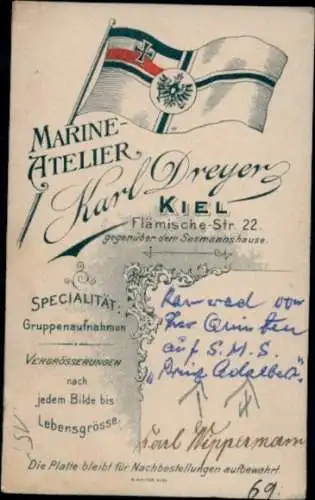 MARINE-
ATELIER
Karl Dreyer
KIEL
Flämische-Str. 22.
gegenüber dem Seemannshause.
SPECIALITÄT:
Gruppenaufnahmen
VERGRÖSSERUNGEN
nach
jedem Bilde bis
Lebensgrösse.
von
auf S.M.S.
"Prinz Adalbert"
15
Carl Wippermann
Die Platte bleibt für Nachbestellungen aufbewahrt.
69.